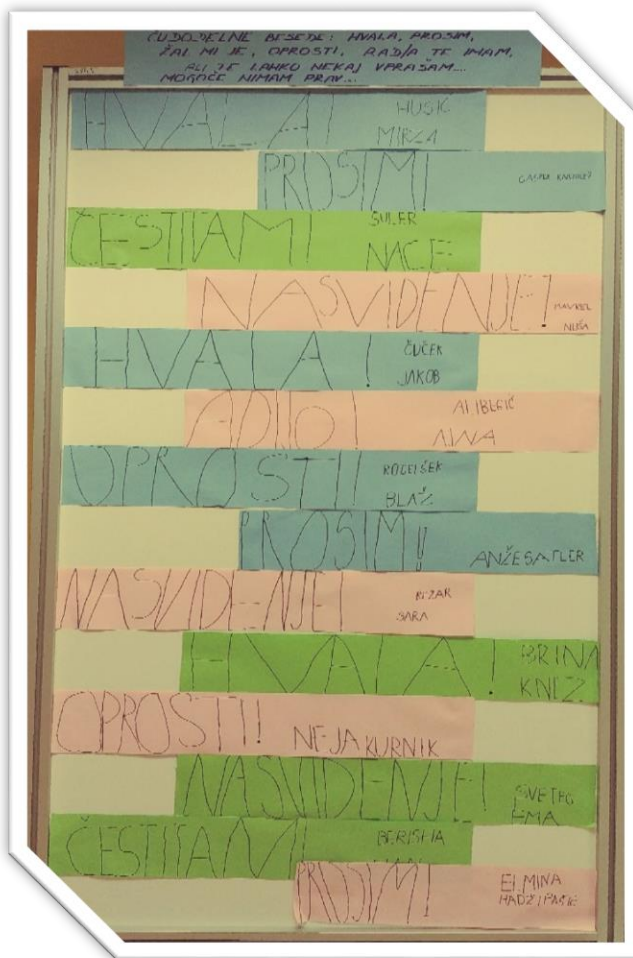 ČUDODELNE BESEDE: HVALA, PROSIM,
ŽAL MI JE, OPROSTI, RAD/A TE IMAM,
ALI TE LAHKO NEKAJ VPRAŠAM...
MOGOČE NIMAM PRAV...
HVALA! HUSIĆ
MIRZA
PROSIM!
ČESTITAM! ŠULER
NACE
NASVIDENJE!
NUŠA
HVALA! ČUČEK
JAKOB
ADIJO! ALIBEGIĆ
AJNA
OPROSTI!
BLAŽ
PROSIM!! ANŽE SATLER
NASVIDENJE! RIZAR
SARA
HVALA! BRINA
KNEZ
OPROSTI! NEJA KURNIK
NASVIDENJE! SVETEC
EMA
ČESTITAM! BERISHA
PROSIM! ELMINA